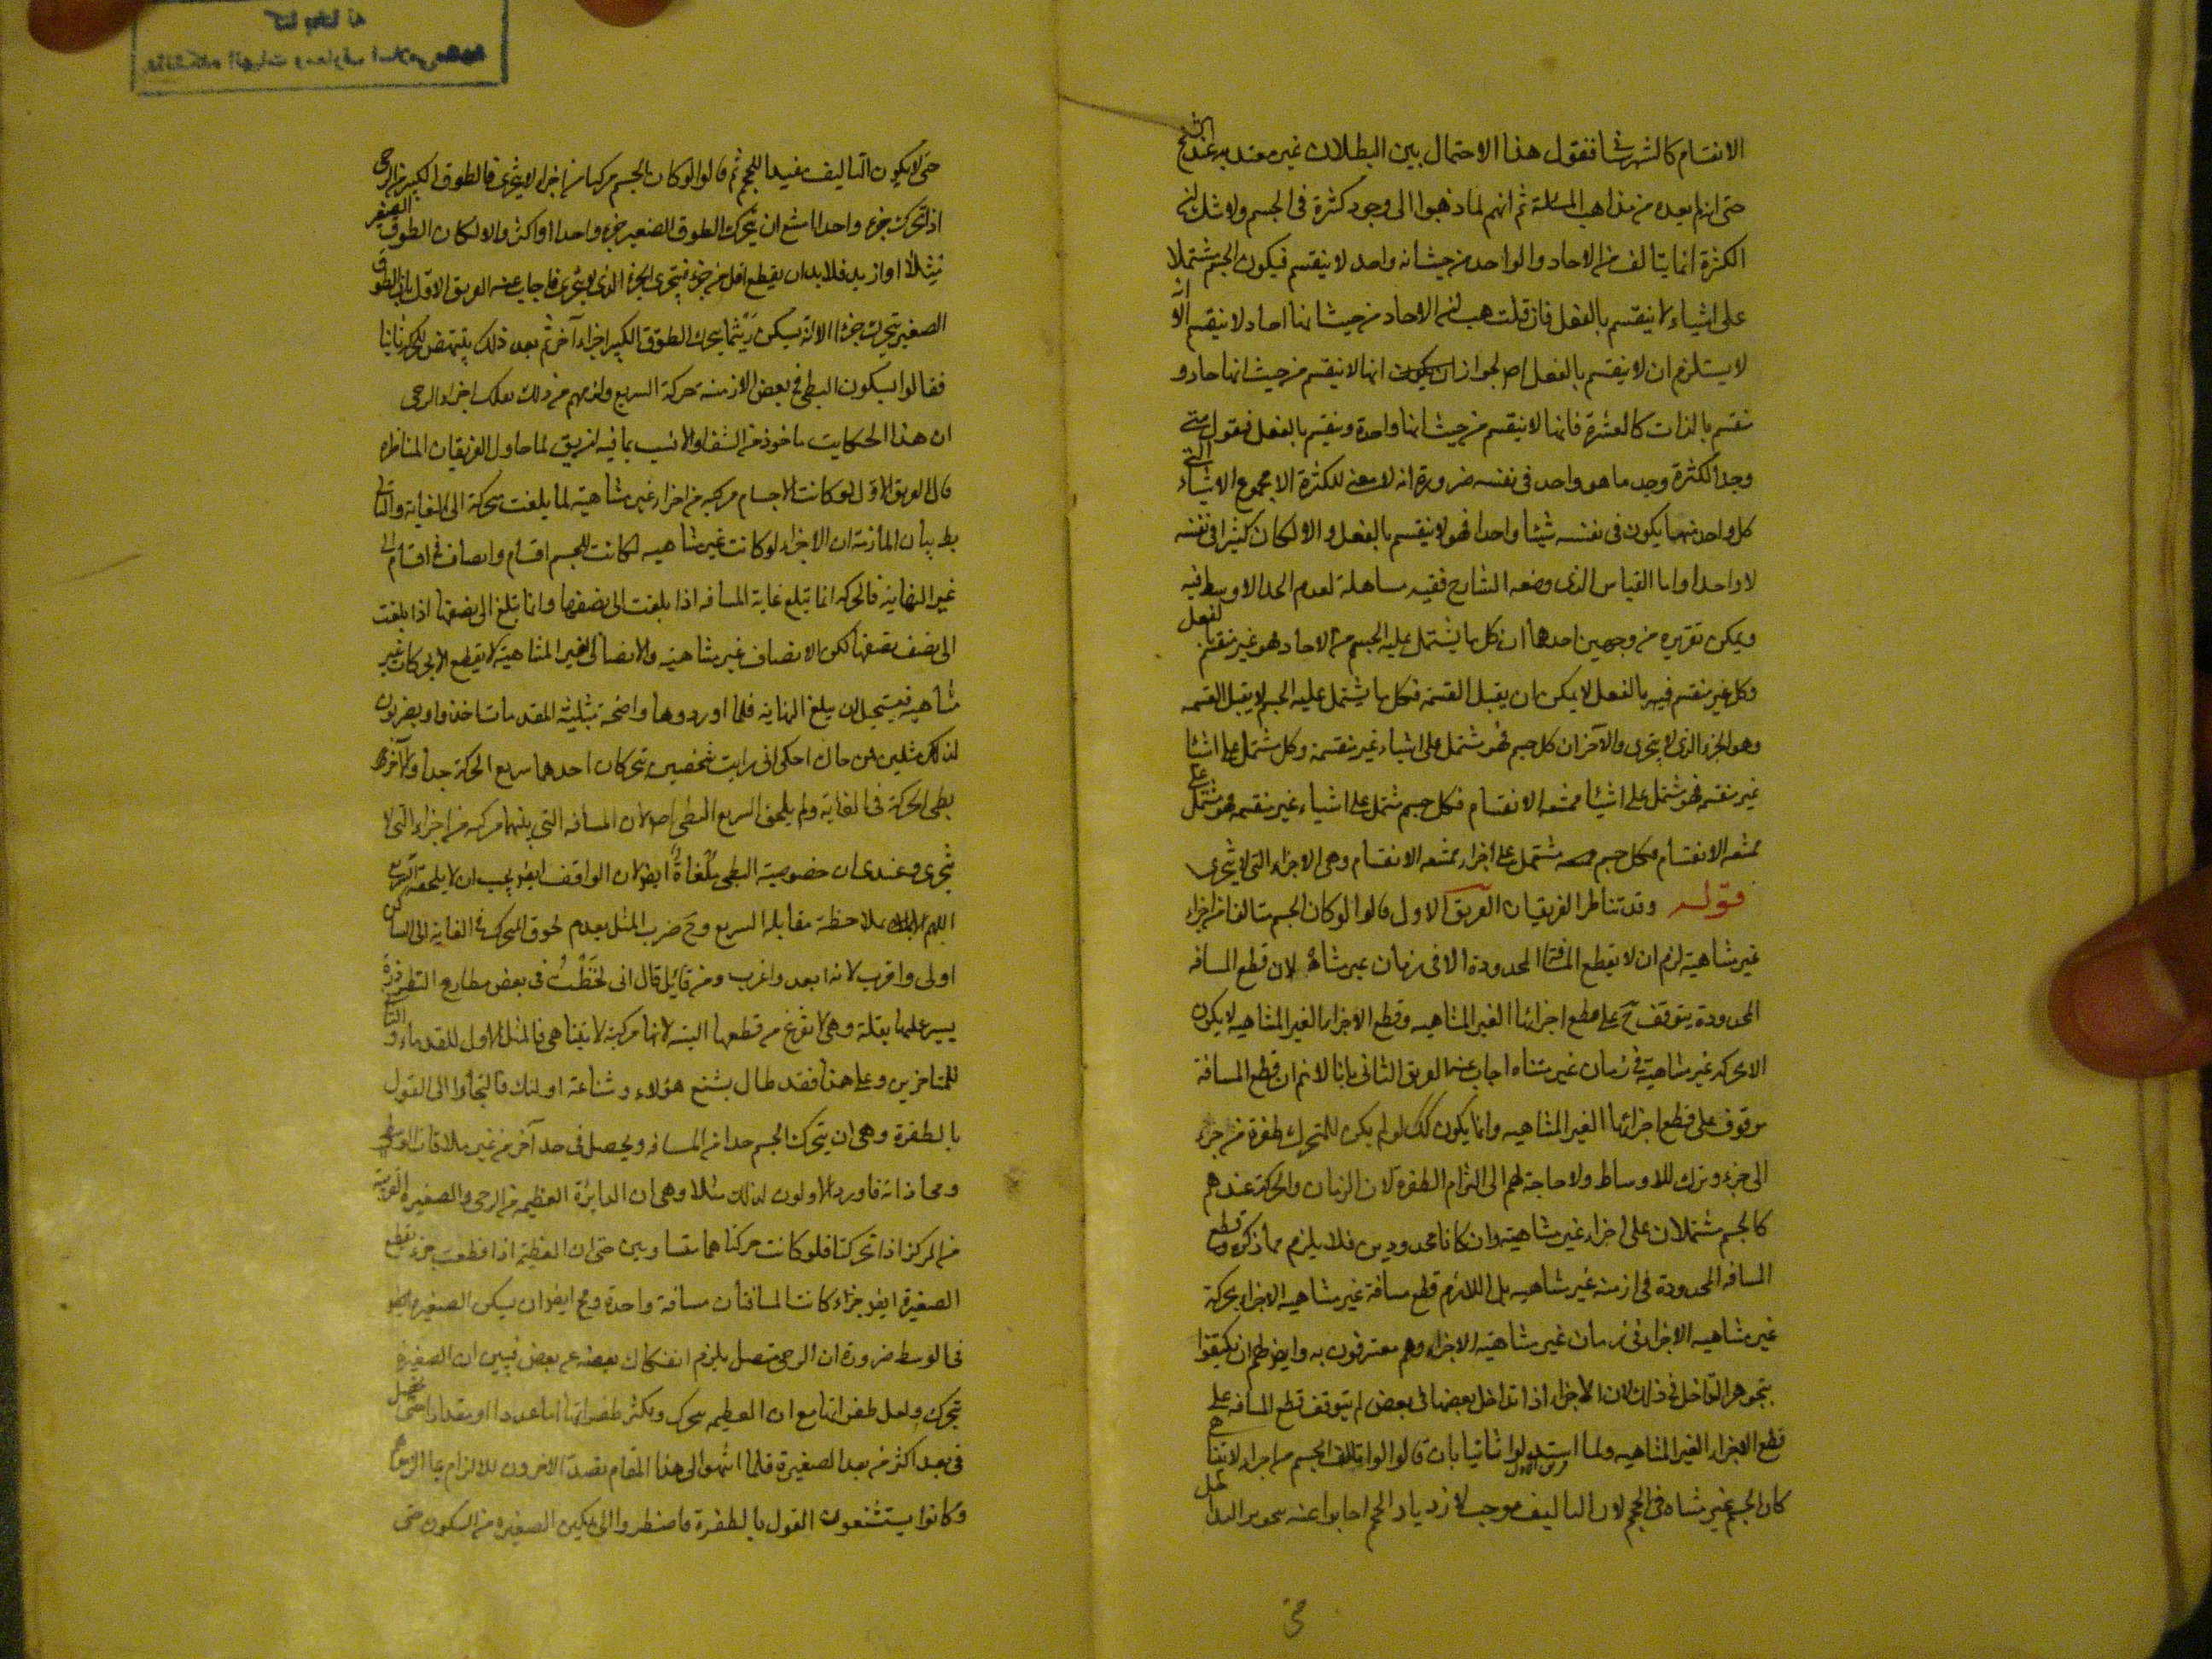 الانقسام كالشهرستانى فنقول هذا الاحتمال بين البطلان غير معتد به عند الشيخ
حتى انه لم يعده من مذاهب المسئلة ثم انهم لما ذهبوا الى وجود كثرة فى الجسم ولا شك ان
الكثرة انما يتالف من الاحاد والواحد من حيث انه واحد لا ينقسم فيكون الجسم مشتملا
على اشياء لا ينقسم بالفعل فان قلت هب ان الاحاد من حيث انها احاد لا ينقسم الا انه
لا يستلزم ان لا ينقسم بالفعل اصلا لجواز ان يكون انها لا ينقسم من حيث انها احاد و
منقسم بالذات كالعشرة فانها لا ينقسم من حيث انها واحدة وينقسم بالفعل فنقول متى
وجد الكثرة وجد ما هو واحد فى نفسه ضرورة انه لا معنى للكثرة الا مجموع الاشياء التى
كل واحد منها يكون فى نفسه شيئا واحدا فهو لا ينقسم بالفعل والا لكان كثيرا فى نفسه
لا واحدا واما القياس الذى وضعه الشارح ففيه مساهلة لعدم الحد الاوسط فيه
ويمكن تقريره من وجهين احدهما ان كل ما يشتمل عليه الجسم من الاحاد هو غير منقسم بالفعل
وكل غير منقسم فيه بالفعل لا يمكن ان يقبل القسمة فكل ما يشتمل عليه الجسم لا يقبل القسمه
وهو الجزء الذى لا يتجزى والآخر ان كل جسم فهو مشتمل على اشياء غير منقسمة وكل مشتمل على اشيا
غير منقسمه فهو مشتمل على اشيا ممتنعه الانقسام فكل جسم مشتمل على اشياء غير منقسمه فهو مشتمل على
ممتنعه الانقسام فكل جسم مشتمل على اجزاء ممتنعه الانقسام وهى الاجزاء التى لا يتجزى
قوله وقد تناظر الفريقان الفريق الاول قالوا لو كان الجسم متالفا من اجزاء
غير متناهية لزم ان لا يقطع المسافة المحدودة الا فى زمان غير متناه لان قطع المسافه
المحدودة يتوقف ح على قطع اجزائها الغير المتناهيه وقطع الاجزاء الغير المتناهيه لا يكون
الا بحركه غير متناهية فى زمان غير متناه اجاب عنه الفريق الثانى بانا لا نم ان قطع المسافة
موقوف على قطع اجزائها الغير المتناهيه وانما يكون كك لو لم يكن للمتحرك طفرة من جزء
الى جزء وترك للاوساط ولا حاجة لهم الى التزام الطفرة لان الزمان والحركة عندهم
كالجسم مشتملان على اجزاء غير متناهية وان كانا محدودين فلا يلزم مما ذكروه قطع
المسافه المحدودة فى ازمنه غير متناهيه بل اللازم قطع مسافة غير متناهيه الاجزاء بحركة
غير متناهيه الاجزاء فى زمان غير متناهية الاجزاء وهم معترفون به وايضا لهم ان يكتفوا
بتجويز التداخل فى ذلك لان الاجزاء اذا تداخل بعضها فى بعض لم يتوقف قطع المسافه على
قطع الاجزاء الغير المتناهيه ولما استدلوا ثانيا بان قالوا لو تالف الجسم من اجزاء لا يتناهى
كان الجسم غير متناه فى الحجم لان التاليف موجب لازدياد الحجم اجابوا عنه بتجويز التداخل
حتى
حتى لا يكون التاليف مفيدا للحجم ثم قالوا لو كان الجسم مركبا من اجزاء لا يتجزى فالطوق الكبير من الرحى
اذا تحرك جزء واحدا امتنع ان يتحرك الطوق الصغير جزء واحدا او اكثر والا لكان الطوق الصغير
مثلا او ازيد فلا بد ان يقطع اقل من جزء فيتجزى الجزء الذى لا يتجزى فاجاب عنه الفريق الاول بان الطوق
الصغير يتحرك جزءا الا انه يسكن ريثما يتحرك الطوق الكبير اجزاء آخر ثم بعد ذلك ينتهض للحركة ثانيا
فقالوا بسكون البطى فى بعض الازمنه حركة السريع ولزمهم من ذلك تفكك اجزاء الرحى
ان هذا الحكايت ماخوذة من الشفا والانسب بما فيه ان يق لما حاول الفريقان المناظره
قال الفريق الاول لو كانت الاجسام مركبه من اجزاء غير متناهية لما بلغت حركة الى الغاية والتالى
بط بيان الملازمة ان الاجزاء لو كانت غير متناهيه لكانت للجسم اقسام وانصاف فى اقسام الى
غير النهاية فالحركه انما تبلغ غاية المسافه اذا بلغت الى نصفها وانما تبلغ الى نصفها اذا بلغت
الى نصف نصفها لكن الانصاف غير متناهية والانصاف الغير المتناهية لا يقطع الا بحركات غير
متناهيه فيستحيل ان يبلغ النهاية فلما اوردوها واضحة مثبتة المقدمات اخذوا ويضربون
لذلك مثلين من حاك احكى انى رايت شخصين يتحركان احدهما سريع الحركة جدا والآخر
بطى الحركة فى الغاية ولم يلحق السريع البطى اصلا لان المسافه التى بينهما مركبه من اجزاء التى لا
يتجزى وعندى ان خصوصية البطى ملغاة ايضا لان الواقف ايضا يجب ان لا يلحقه السريع
اللهم الا بملاحظة مقابله السريع وح ضرب المثل بعدم لحوق المتحرك فى الغاية الى الساكن
اولى واقرب لانه ابعد واغرب ومن قائل قال انى لحظت فى بعض مطارح النظر ذرة
يسير عليها بقلة وهى لا تفرغ من قطعها البته لانها مركبة لا يتناهى فالمثل الاول للقدماء و الثانى
للمتاخرين وعلى هذا فقد طال يشنع هؤلاء وشناعة اولئك فالتجأوا الى القول
بالطفرة وهى ان يتحرك الجسم حدا من المسافه ويحصل فى حد آخر من غير ملاقات الوسط
ومحاذاته فاورد الاولون لذلك مثلا وهى ان الدايرة العظيمه من الرحى والصغيرة القريبة
من المركز اذا تحركتا فلو كانت حركتاهما متساويين حتى ان العظيمة اذا قطعت جزء تقطع
الصغيرة ايضا جزءا كانت المسافتان مسافة واحدة ومح ايضا ان يسكن الصغيره
فى الوسط ضرورة ان الرحى متصل يلزم انفكاك بعضه عن بعض فبين ان الصغيرة
تتحرك ولعل طفراتها مع ان العظيمه تتحرك ويكثر طفراتها اما عددا او مقدارا حتى تحصل
فى بعد اكثر من بعد الصغيرة فلما انتهوا الى هذا المقام تصدى الاخرون للالزام
وكانوا يستشنعون القول بالطفرة فاضطروا الى تمكين الصغيره من السكون حتى